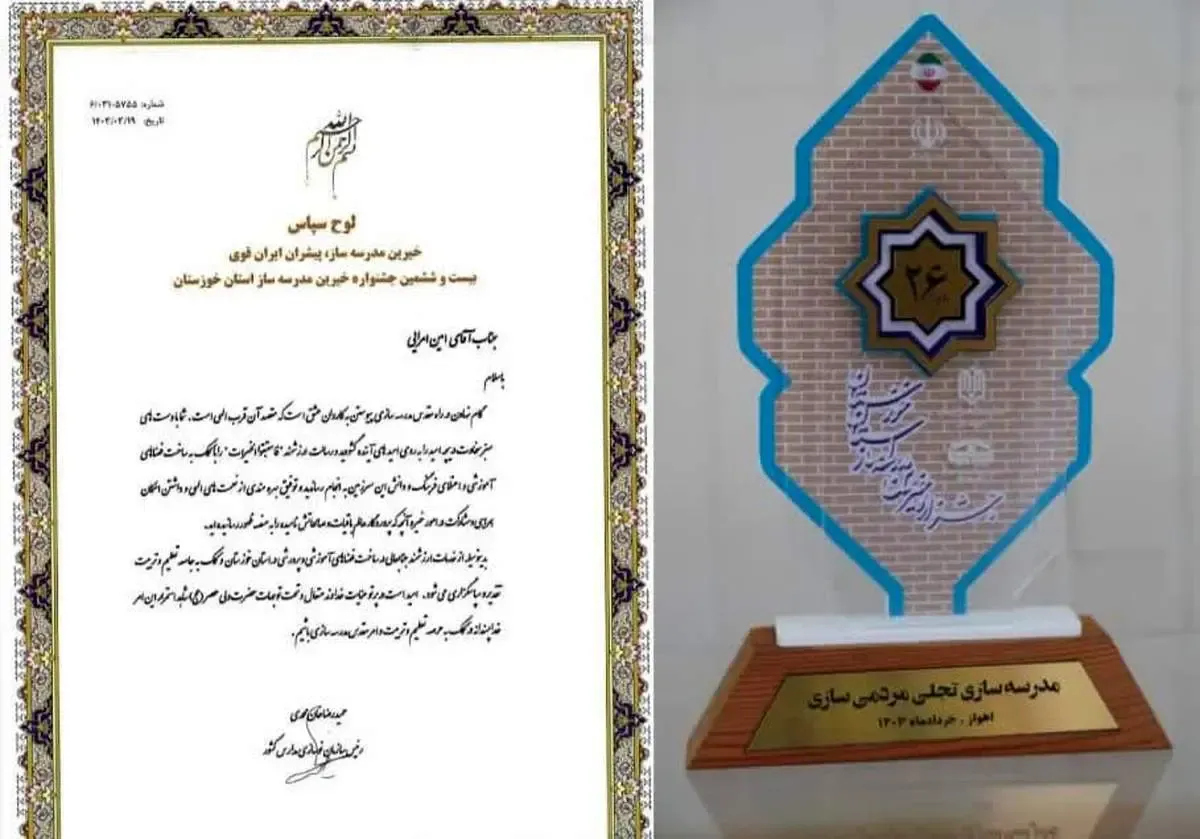 شماره: ۶/۰۳۱۰۵۷۵۵
تاریخ: ۱۴۰۳/۰۳/۱۹
بسم الله الرحمن الرحیم
لوح سپاس
خیرین مدرسه ساز، پیشران ایران قوی
بیست و ششمین جشنواره خیرین مدرسه ساز استان خوزستان
جناب آقای امین امرایی
باسلام
گام نهادن در راه مقدس مدرسه سازی پیوستن به کاروان عشقی است که مقصد آن قرب الهی است. شما با دست های
سبز سخاوت دریچه امید را به روی امیدهای آینده گشودید و رسالت ارزشمند "فاستبقوا الخیرات" را با کمک به ساخت فضاهای
آموزشی و اعتلای فرهنگ و دانش این سرزمین به انجام رسانیدید و توفیق بهره مندی از نعمت های الهی و داشتن امکان
همراهی و مشارکت در امور خیر و آنچه که پروردگار عالم باقیات و صالحاتش نامیده را به منصه ظهور رسانیده اید.
بدینوسیله از خدمات ارزشمند جنابعالی در ساخت فضاهای آموزشی و پرورشی در استان خوزستان و کمک به جامعه تعلیم و تربیت
تقدیر و سپاسگزاری می شود. امید است در پرتو عنایات خداوند متعال و تحت توجهات حضرت ولی عصر (عج) شاهد استمرار این امر
خداپسندانه در کمک به عرصه تعلیم و تربیت و امر مقدس مدرسه سازی باشیم.
حمیدرضا خان محمدی
رئیس سازمان نوسازی مدارس کشور
۲۶
جشنواره خیرین مدرسه ساز
استان خوزستان
مدرسه سازی تجلی مردمی سازی
اهواز ، خردادماه ۱۴۰۳